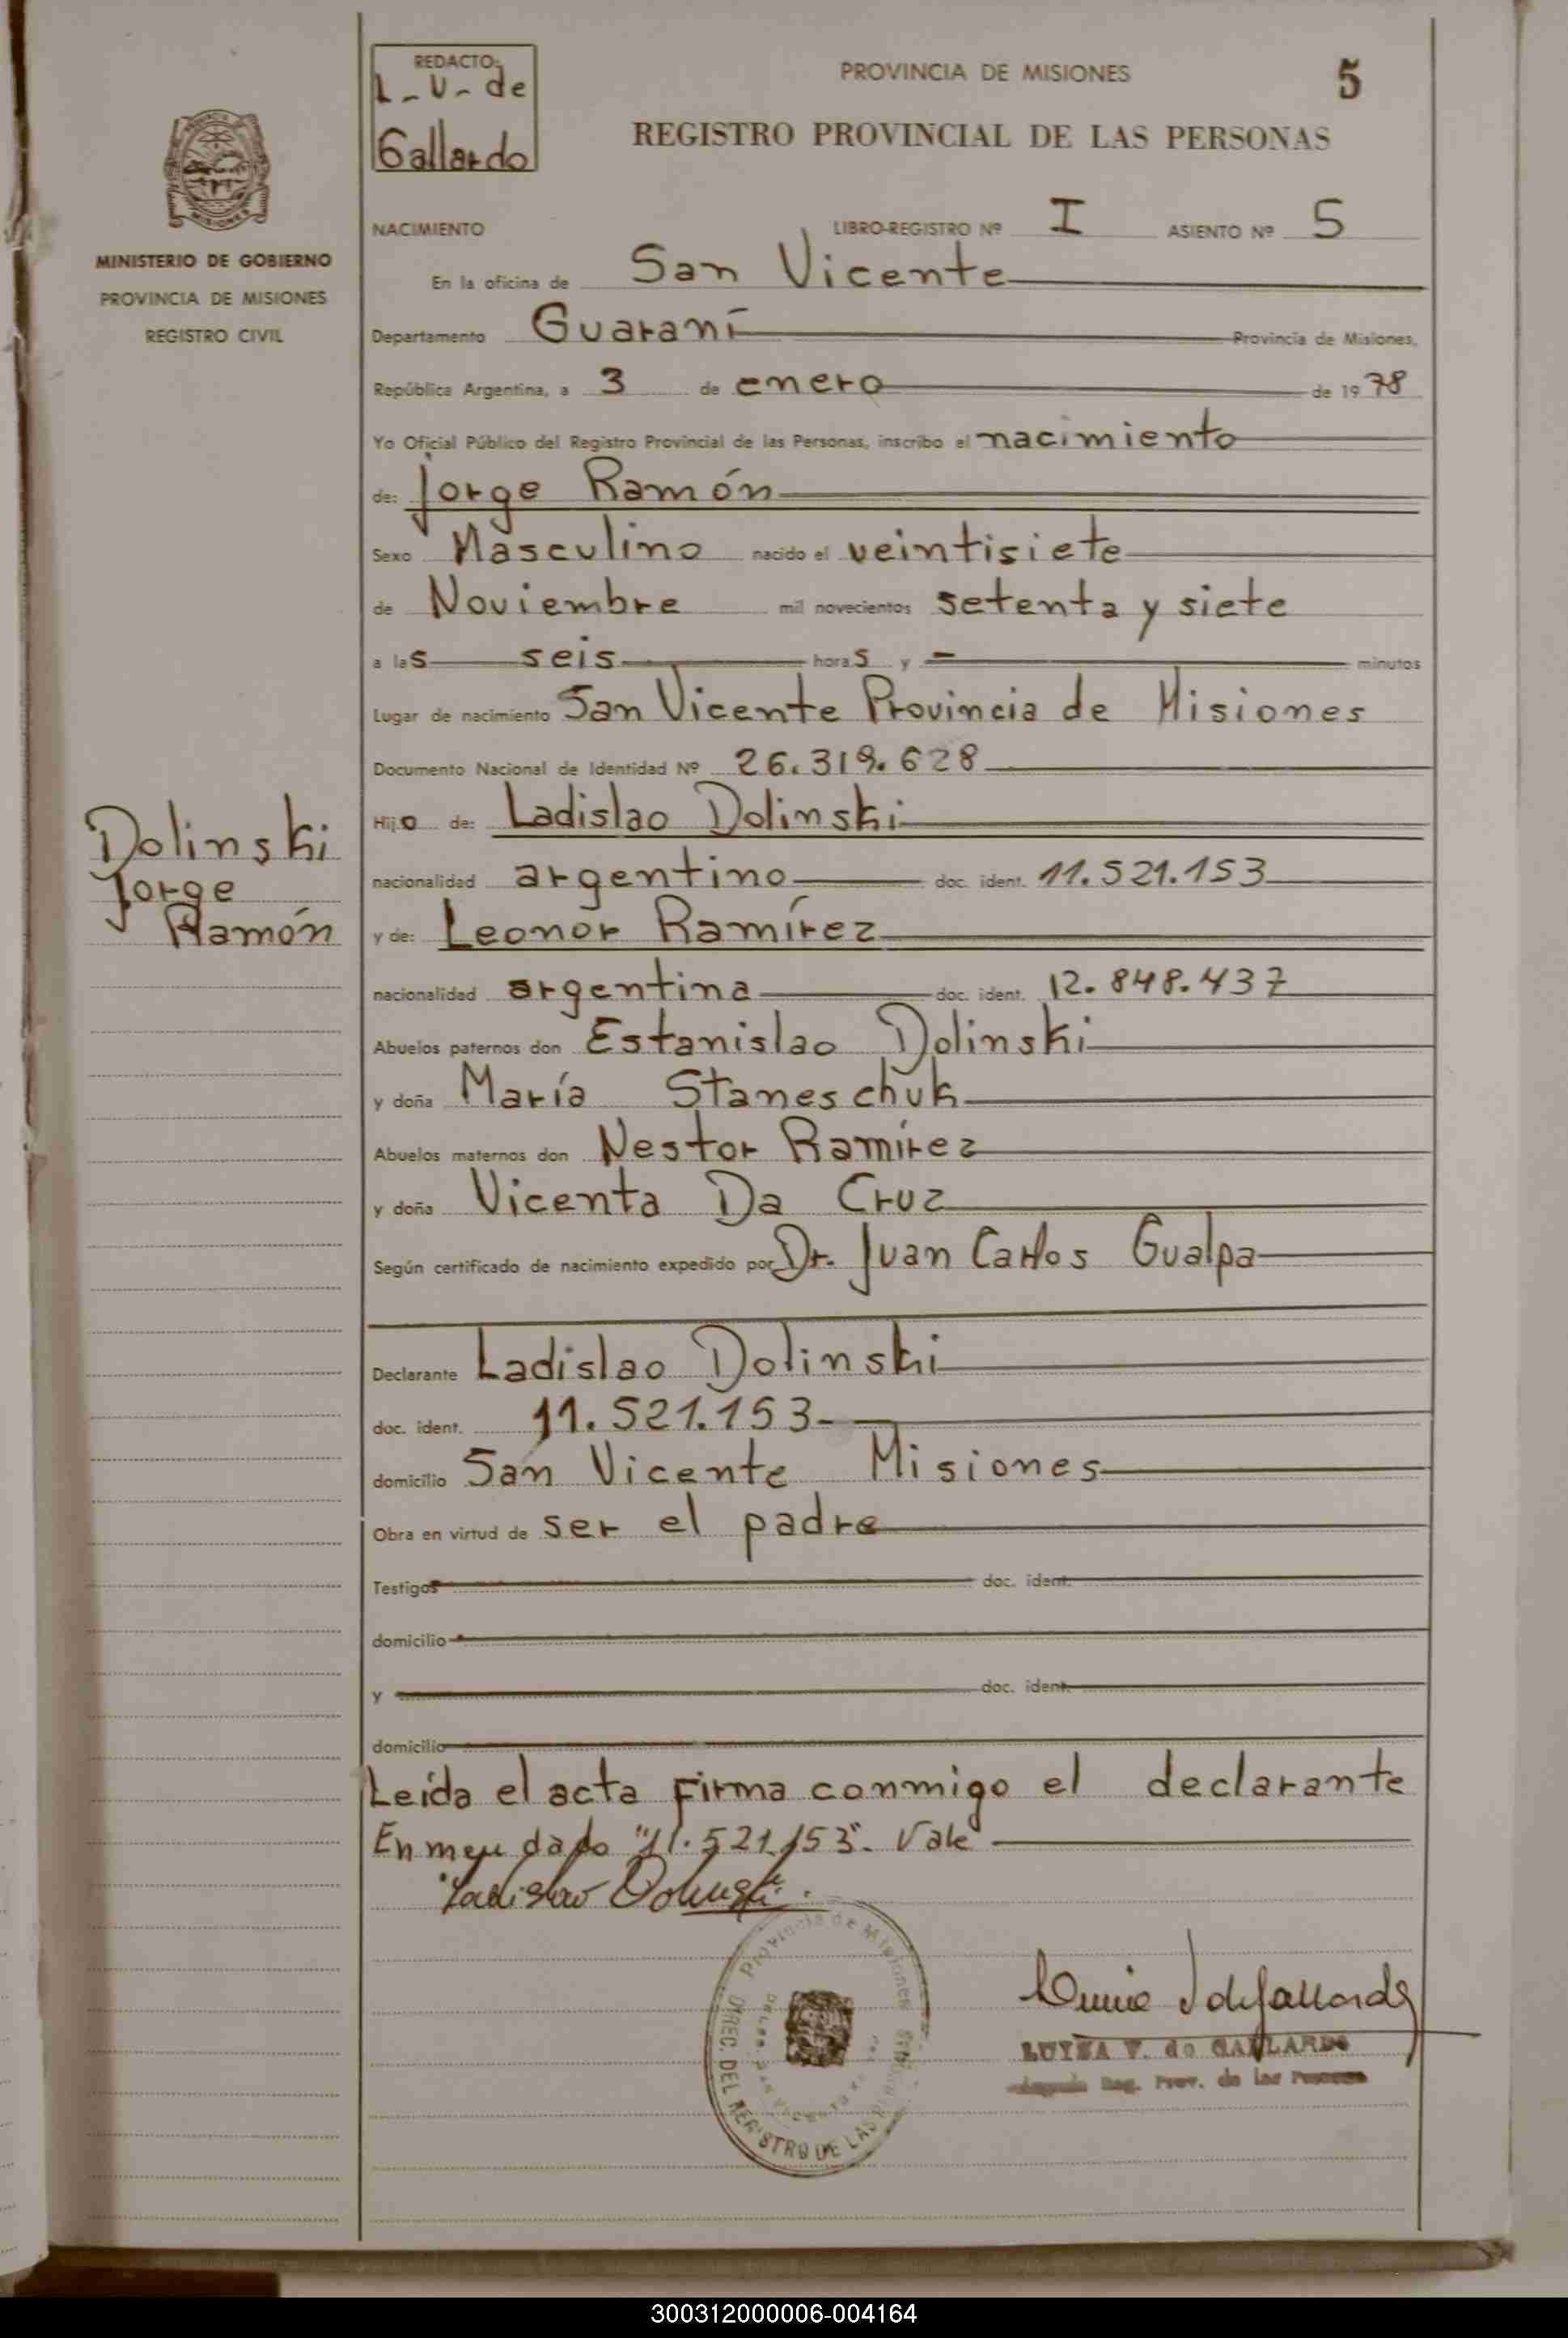 REDACTO:
L-V- de
Gallardo
PROVINCIA DE MISIONES
5
REGISTRO PROVINCIAL DE LAS PERSONAS
MINISTERIO DE GOBIERNO
PROVINCIA DE MISIONES
REGISTRO CIVIL
NACIMIENTO LIBRO-REGISTRO Nº I ASIENTO Nº 5
En la oficina de San Vicente
Departamento Guaraní Provincia de Misiones,
República Argentina, a 3 de enero de 1978
Yo Oficial Público del Registro Provincial de las Personas, inscribo el nacimiento
de: Jorge Ramón
Sexo Masculino nacido el veintisiete
de Noviembre mil novecientos setenta y siete
a las seis horas y - minutos
Lugar de nacimiento San Vicente Provincia de Misiones
Documento Nacional de Identidad Nº 26.319.628
Dolinski
Jorge
Ramón
Hijo de: Ladislao Dolinski
nacionalidad argentino doc. ident. 11.521.153
y de: Leonor Ramírez
nacionalidad argentina doc. ident. 12.848.437
Abuelos paternos don Estanislao Dolinski
y doña María Staneschuk
Abuelos maternos don Nestor Ramírez
y doña Vicenta Da Cruz
Según certificado de nacimiento expedido por Dr. Juan Carlos Gualpa
Declarante Ladislao Dolinski
doc. ident. 11.521.153
domicilio San Vicente Misiones
Obra en virtud de ser el padre
Testigos doc. ident.
domicilio
y doc. ident.
domicilio
Leída el acta firma conmigo el declarante
Enmendado "11.521.153". Vale
Ladislao Dolinski
Provincia de Misiones
DIREC. DEL REGISTRO DE LAS
LUISA V. de GALLARDO
Reg. Prov. de las Personas
300312000006-004164